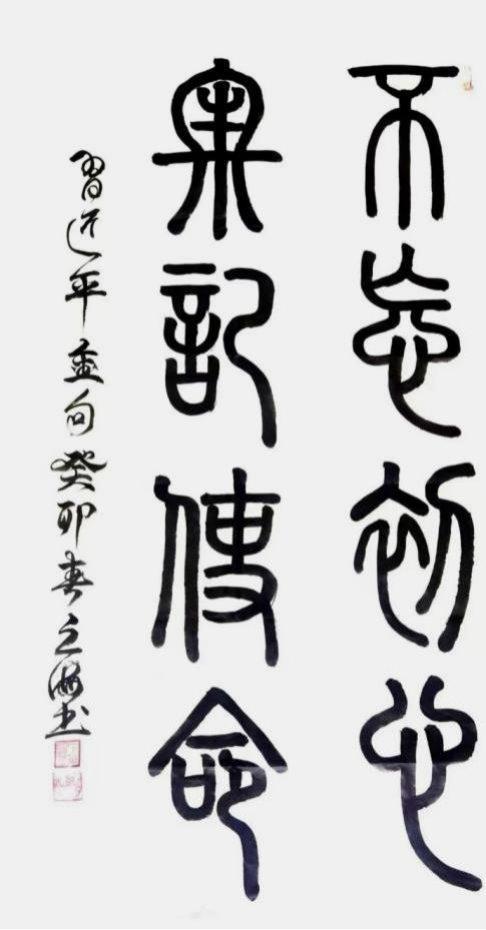 不忘初心
牢記使命
習近平金句癸卯春立海书